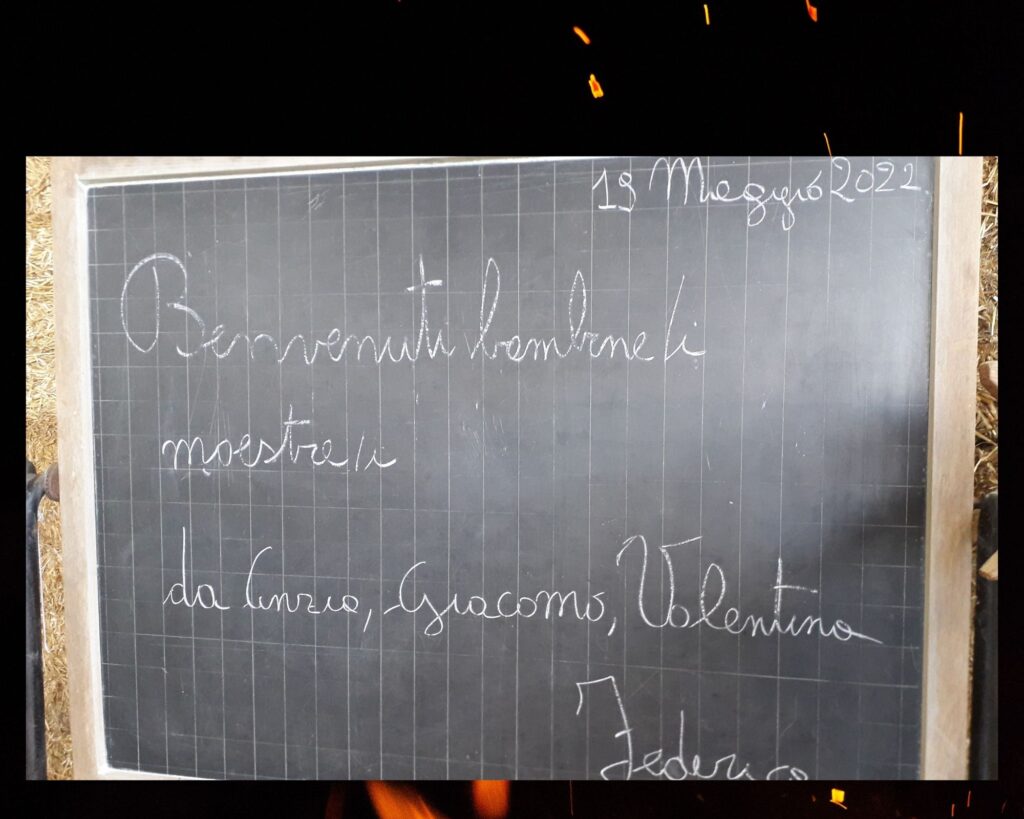 19 Maggio 2022
Benvenuti bambine/i
maestre/i
da Cinzia, Giacomo, Valentina
Federico